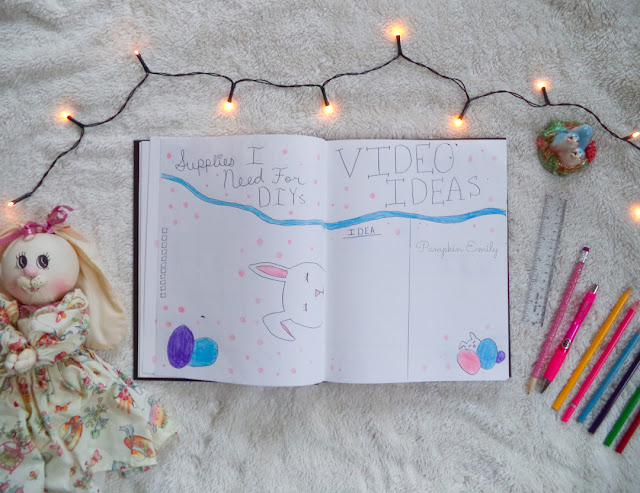 Supplies I
Need For
DIYs
VIDEO
IDEAS
IDEA
Pumpkin Emily